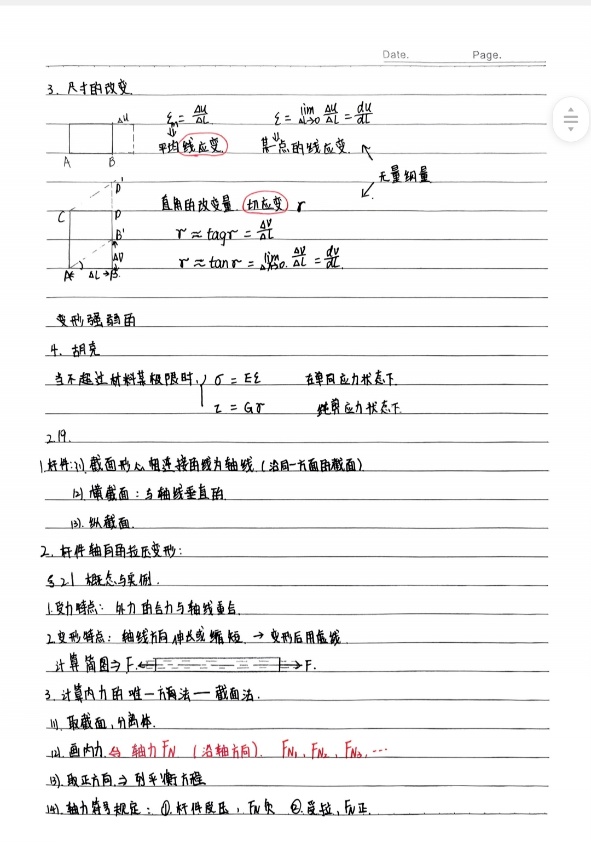 Date. Page.
3. 尺寸的改变
ΔU
εm = ΔU/ΔL ε = lim ΔL→0 ΔU/ΔL = du/dL
平均线应变 某一点的线应变
A B
无量纲量
D'
直角的改变量 (切应变) r
C D
B' r ≈ tagr = ΔV/ΔL
ΔV
r ≈ tanr = lim ΔL→0. ΔV/ΔL = dv/dL.
A ΔL B
变形强弱的
4. 胡克
当不超过材料某极限时, σ = Eε 在单向应力状态下.
τ = Gr 纯剪应力状态下
2.19.
1.杆件:(1).截面形心相连接的线为轴线.(沿同一方面的截面)
(2).横截面:与轴线垂直的.
(3).纵截面.
2.杆件轴向的拉压变形:
§2.1 概念与实例.
1.受力特点: 外力的合力与轴线重合.
2.变形特点: 轴线方向伸长或缩短. → 变形后用虚线
计算简图⇒ F. F.
3.计算内力的唯一方法 — 截面法.
(1).取截面,分离体.
(2).画内力. ⇔ 轴力FN.(沿轴方向). FN1, FN2, FN3, ...
(3).取正方向.⇒ 列平衡方程
(4).轴力符号规定: ①.杆件受压, FN负 ②.受拉, FN正.